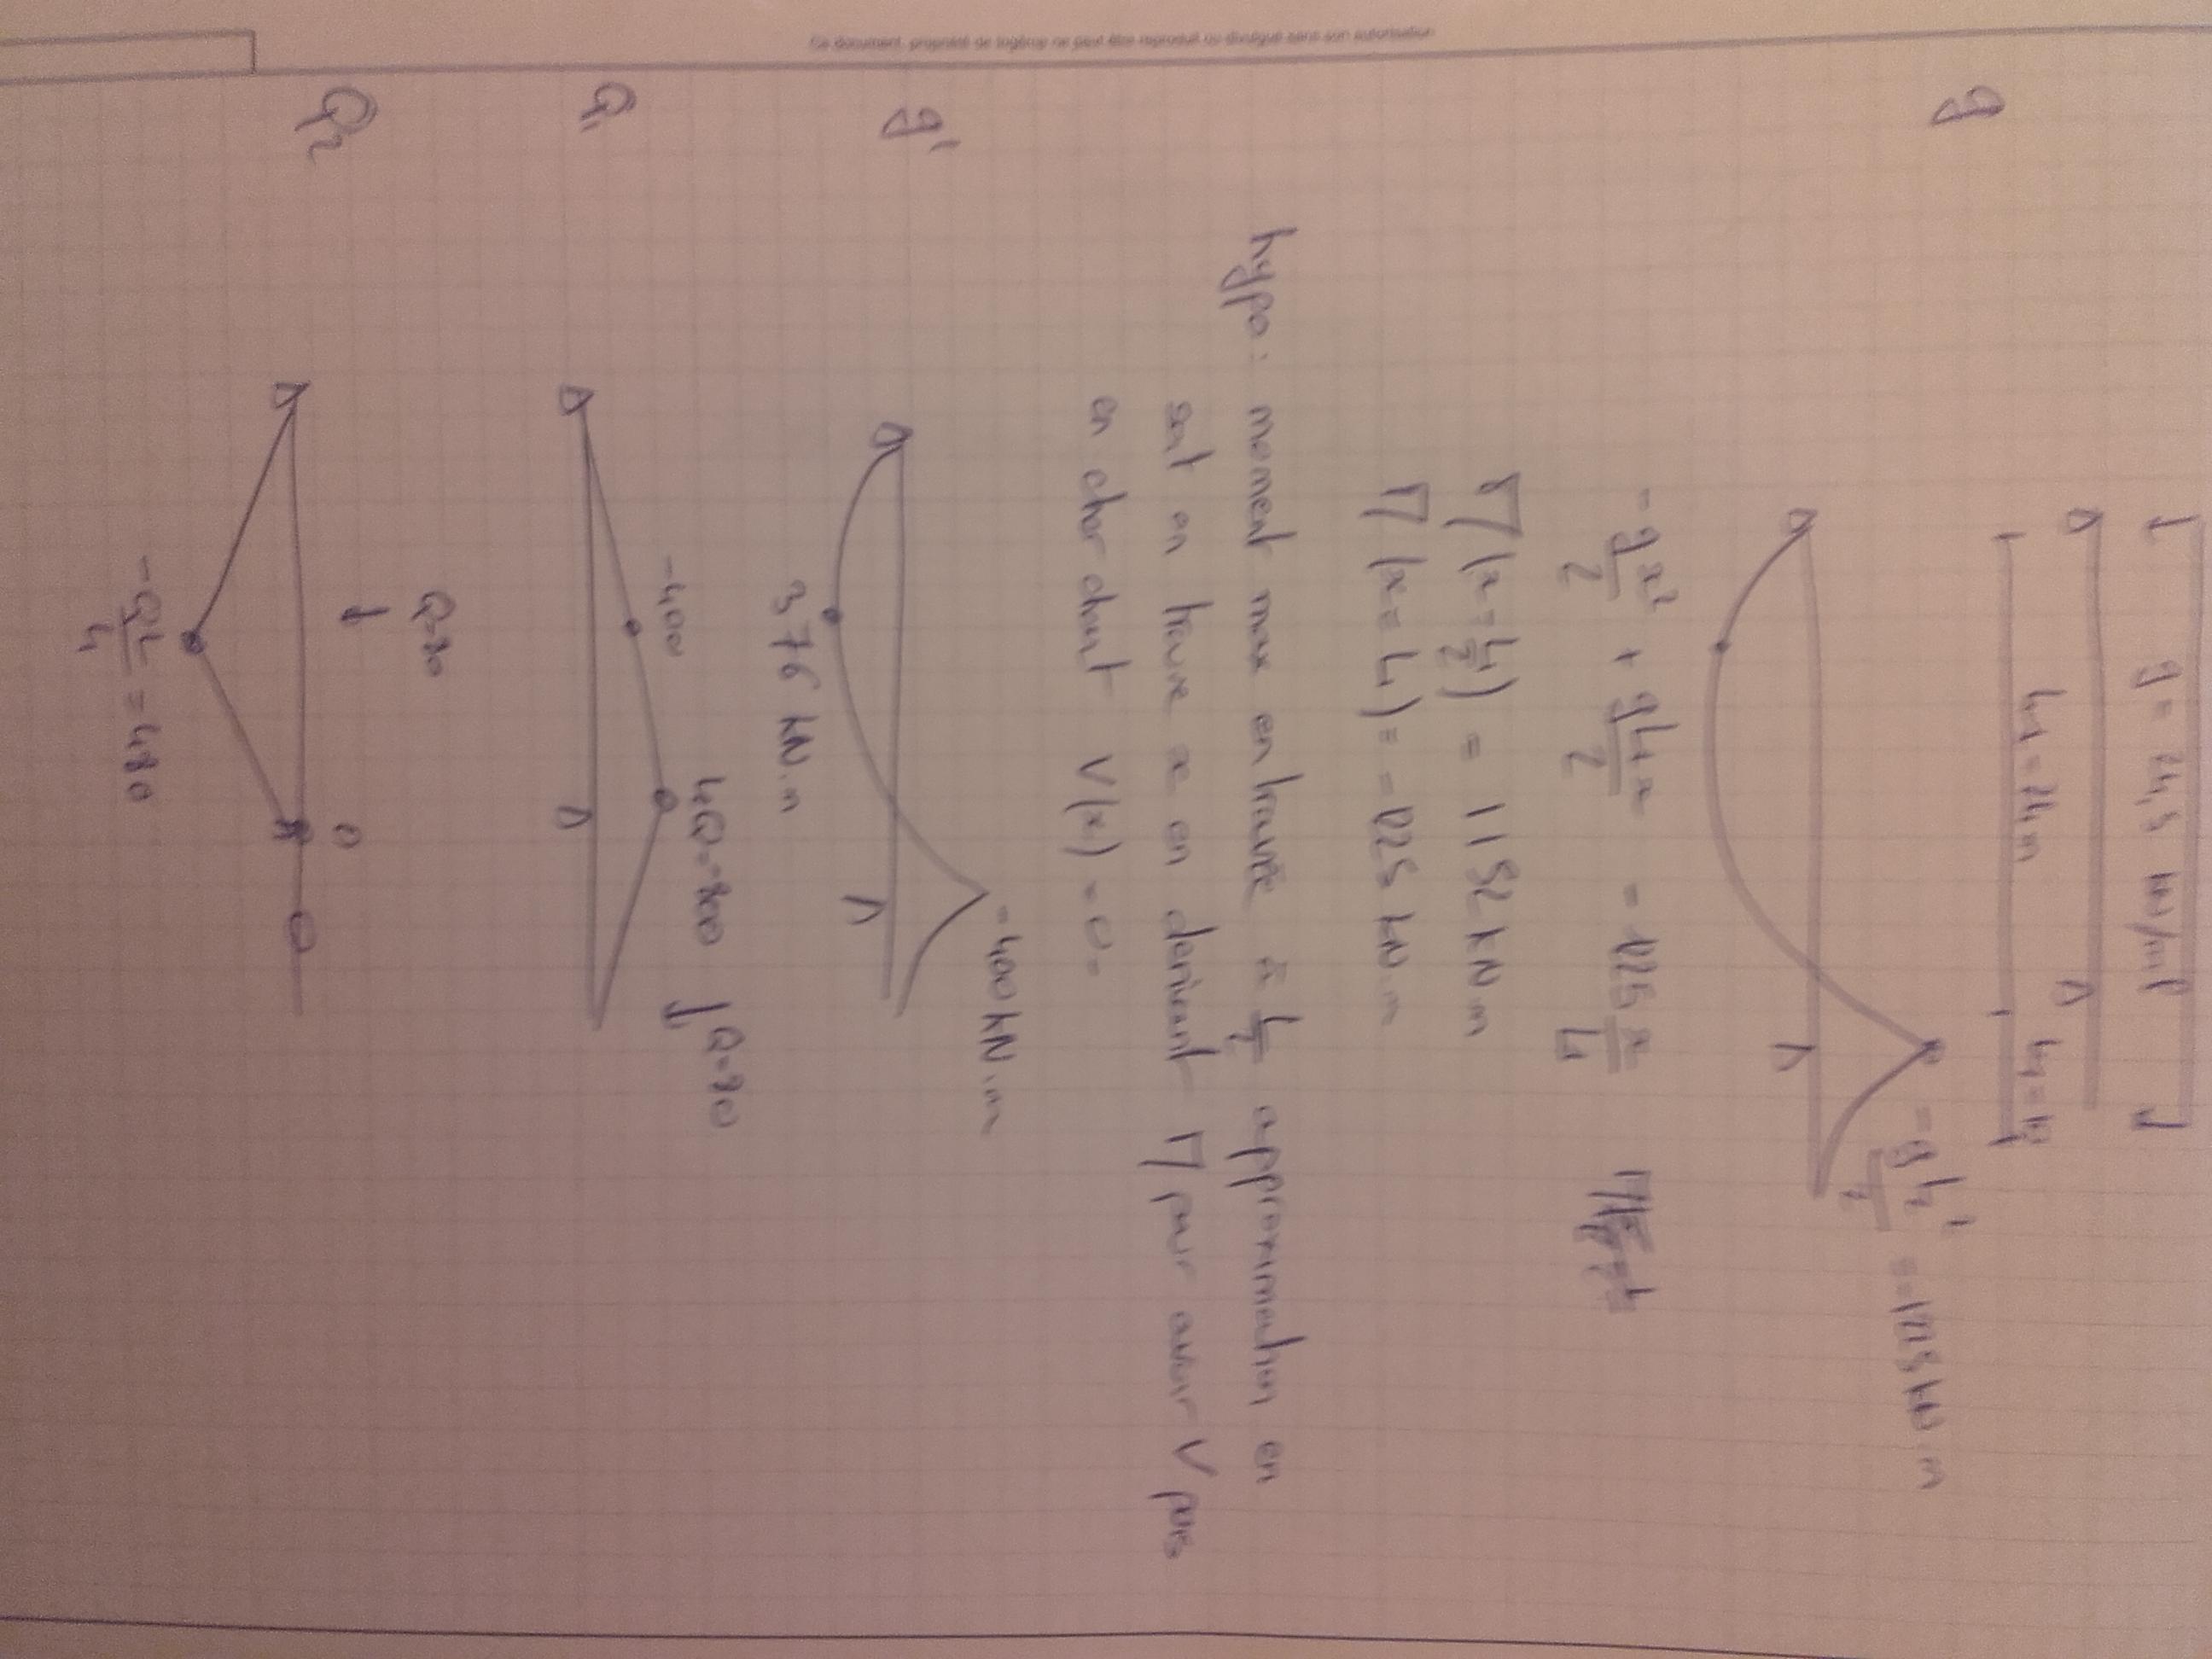 Ce document, propriété de Ingérop ne peut être reproduit ou divulgué sans son autorisation
g = 24,5 kN/ml
L1 = 24m
g
= 1225 kN.m
- gx²/2 + gL1x/2 - 1225 x/L1
M(x=L1/2) = 1152 kN.m
M(x=L1) = -1225 kN.m
hypo: moment max en travée à L/2 approximation en
soit on trouve x en dérivant M pour avoir V puis
en cherchant V(x) = 0.
g'
-400 kN.m
376 kN.m
Q1
-400
Q=80
Q2
Q=80
-QL/4 = 480